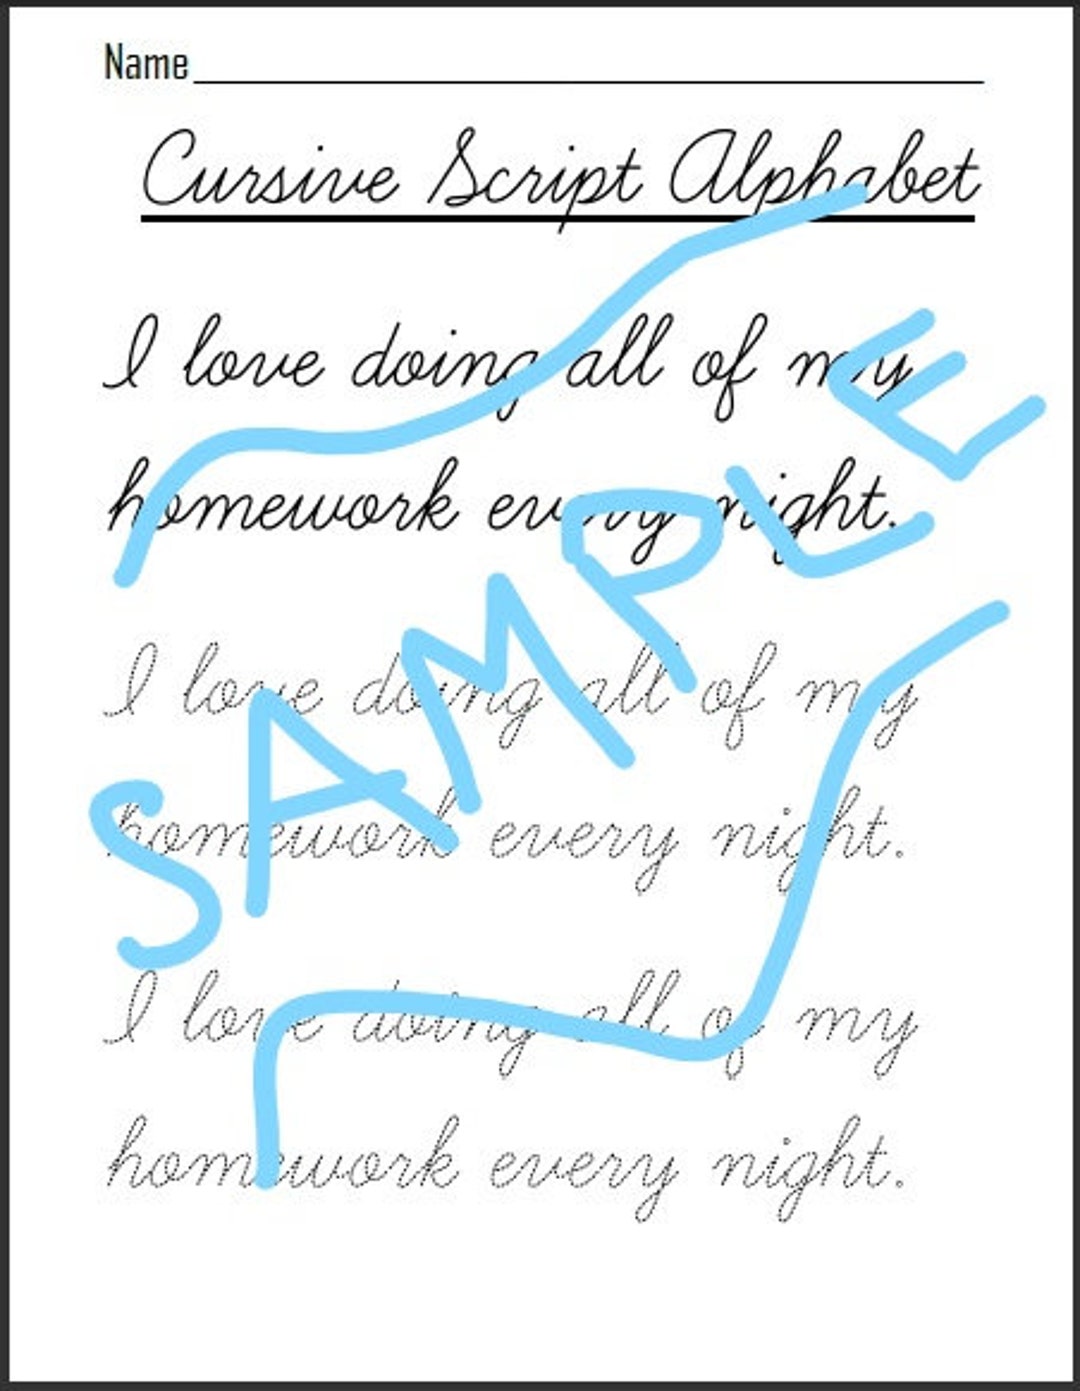 Name
Cursive Script Alphabet
I love doing all of my
homework every night.
I love doing all of my
homework every night.
I love doing all of my
homework every night.
SAMPLE